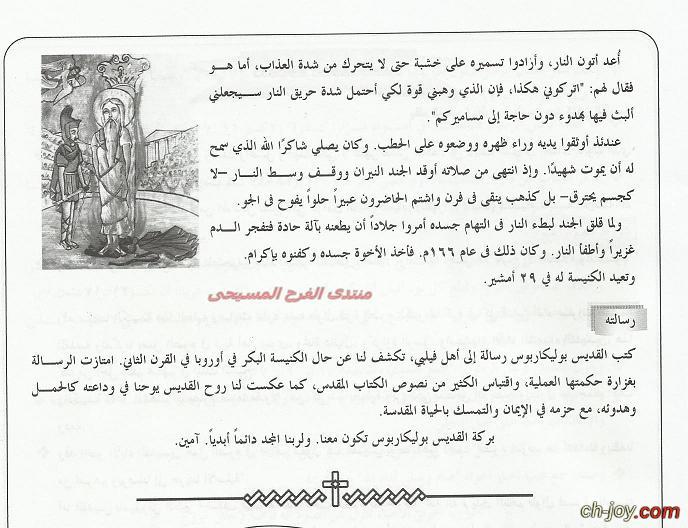 أُعد أتون النار، وأرادوا تسميره على خشبة حتى لا يتحرك من شدة العذاب، أما هـو
فقال لهم: "اتركوني هكذا، فإن الذي وهبني قوة لكي أحتمل شدة حريق النار سـيجعلني
ألبث فيها بهدوء دون حاجة إلى مساميركم".
عندئذ أوثقوا يديه وراء ظهره ووضعوه على الحطب. وكان يصلي شاكرًا الله الذي سمح
له أن يموت شهيدًا. وإذ انتهى من صلاته أوقد الجند النيران ووقـف وسـط النـار –لا
كجسم يحترق– بل كذهب ينقى في فرن واشتم الحاضرون عبيراً حلواً يفوح في الجو.
ولما قلق الجند لبطء النار فى التهام جسده أمروا جلاداً أن يطعنه بآلة حادة فتفجر الـدم
غزيراً وأطفأ النار. وكان ذلك فى عام ١٦٦م. فأخذ الأخوة جسده وكفنوه بإكرام.
وتعيد الكنيسة له في ٢٩ أمشير.
منتدى الفرح المسيحى
رسالته
كتب القديس بوليكاربوس رسالة إلى أهل فيلبي، تكشف لنا عن حال الكنيسة البكر في أوروبا في القرن الثاني. امتازت الرسالة
بغزارة حكمتها العملية، واقتباس الكثير من نصوص الكتاب المقدس، كما عكست لنا روح القديس يوحنا في وداعته كالحمل
وهدوئه، مع حزمه في الإيمان والتمسك بالحياة المقدسة.
بركة القديس بوليكاربوس تكون معنا. ولربنا المجد دائماً أبدياً. آمين.
ch-joy.com